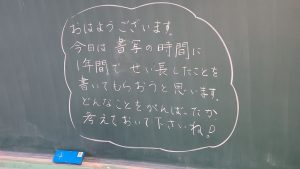 おはようございます。
今日は書写の時間に
1年間でせい長したことを
書いてもらおうと思います。
どんなことをがんばったか
考えておいて下さいね!